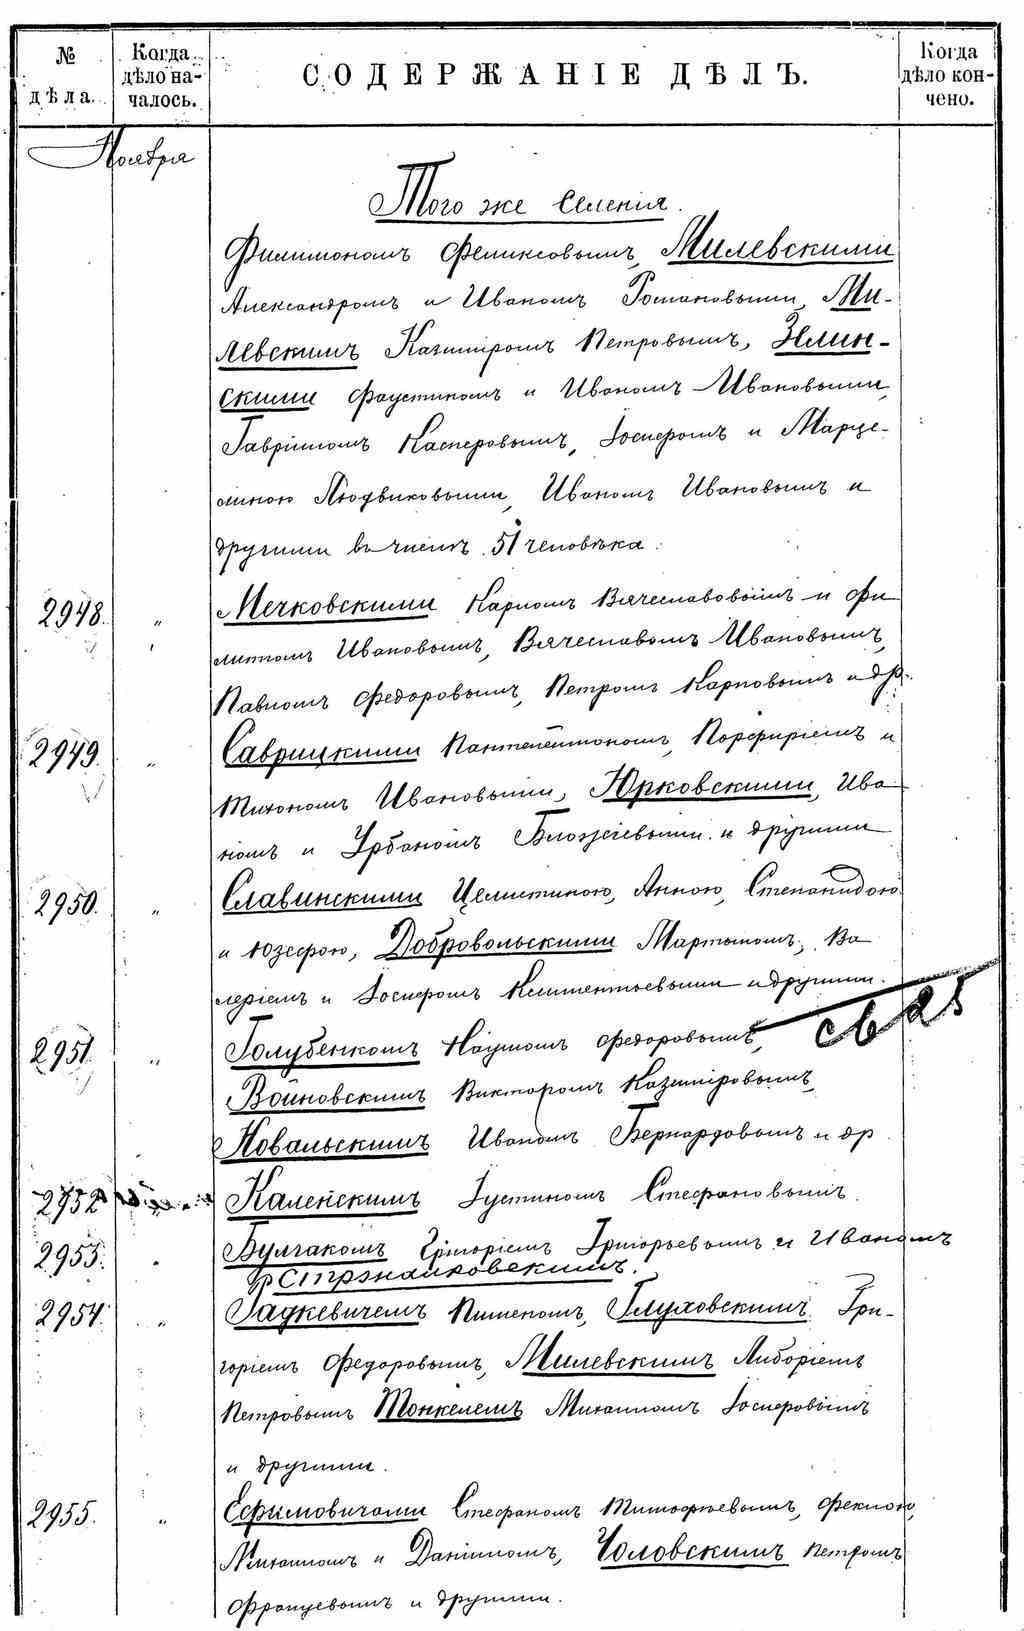 № дѣла.
Когда дѣло началось.
СОДЕРЖАНІЕ ДѢЛЪ.
Когда дѣло кончено.
Ноября
Того же селенія.
Филимономъ Феликсовымъ, Милевскими
Александромъ и Иваномъ Романовыми, Ми-
левскимъ Казиміромъ Петровымъ, Элин-
скими Фаустиномъ и Иваномъ Ивановыми,
Гавріиломъ Касперовымъ, Іосифомъ и Марце-
линою Людвиковыми, Иваномъ Ивановымъ и
другими въ числѣ 51 человѣка.
2948. „ Мечковскими Карпомъ Вячеславовымъ и Фи
липомъ Ивановымъ, Вячеславомъ Ивановымъ,
Павломъ Федоровымъ, Петромъ Карповымъ и др.
2949. „ Саврицкими Пантелеймономъ, Порфиріемъ и
Тихономъ Ивановыми, Юрковскими, Ива
номъ и Урбаномъ Блажеевыми и другими
2950. „ Славинскими Целистиною, Анною, Степанидою
и Юзефою, Добровольскими Мартыномъ, Ва
леріемъ и Іосифомъ Климентьевыми и другими.
2951 „ Голубенкомъ Наумомъ Федоровымъ,
Войновскимъ Викторомъ Казиміровымъ,
Ковальскимъ Иваномъ Бернардовымъ и др
2952 Каленскимъ Іустиномъ Стефановымъ.
2953. „ Булгакомъ Григоріемъ Григорьевымъ и Иваномъ
2954. „ Гадкевичемъ Пименомъ, Глуховскимъ Гри-
горіемъ Федоровымъ, Милевскимъ Либоріемъ
Петровымъ Тонкелемъ Михаиломъ Іосифовымъ
и другими.
2955. „ Ефимовичами Стефаномъ Тимофѣевымъ, Феклою,
Михаиломъ и Даніиломъ, Чоловскимъ Петромъ
Францевымъ и другими.